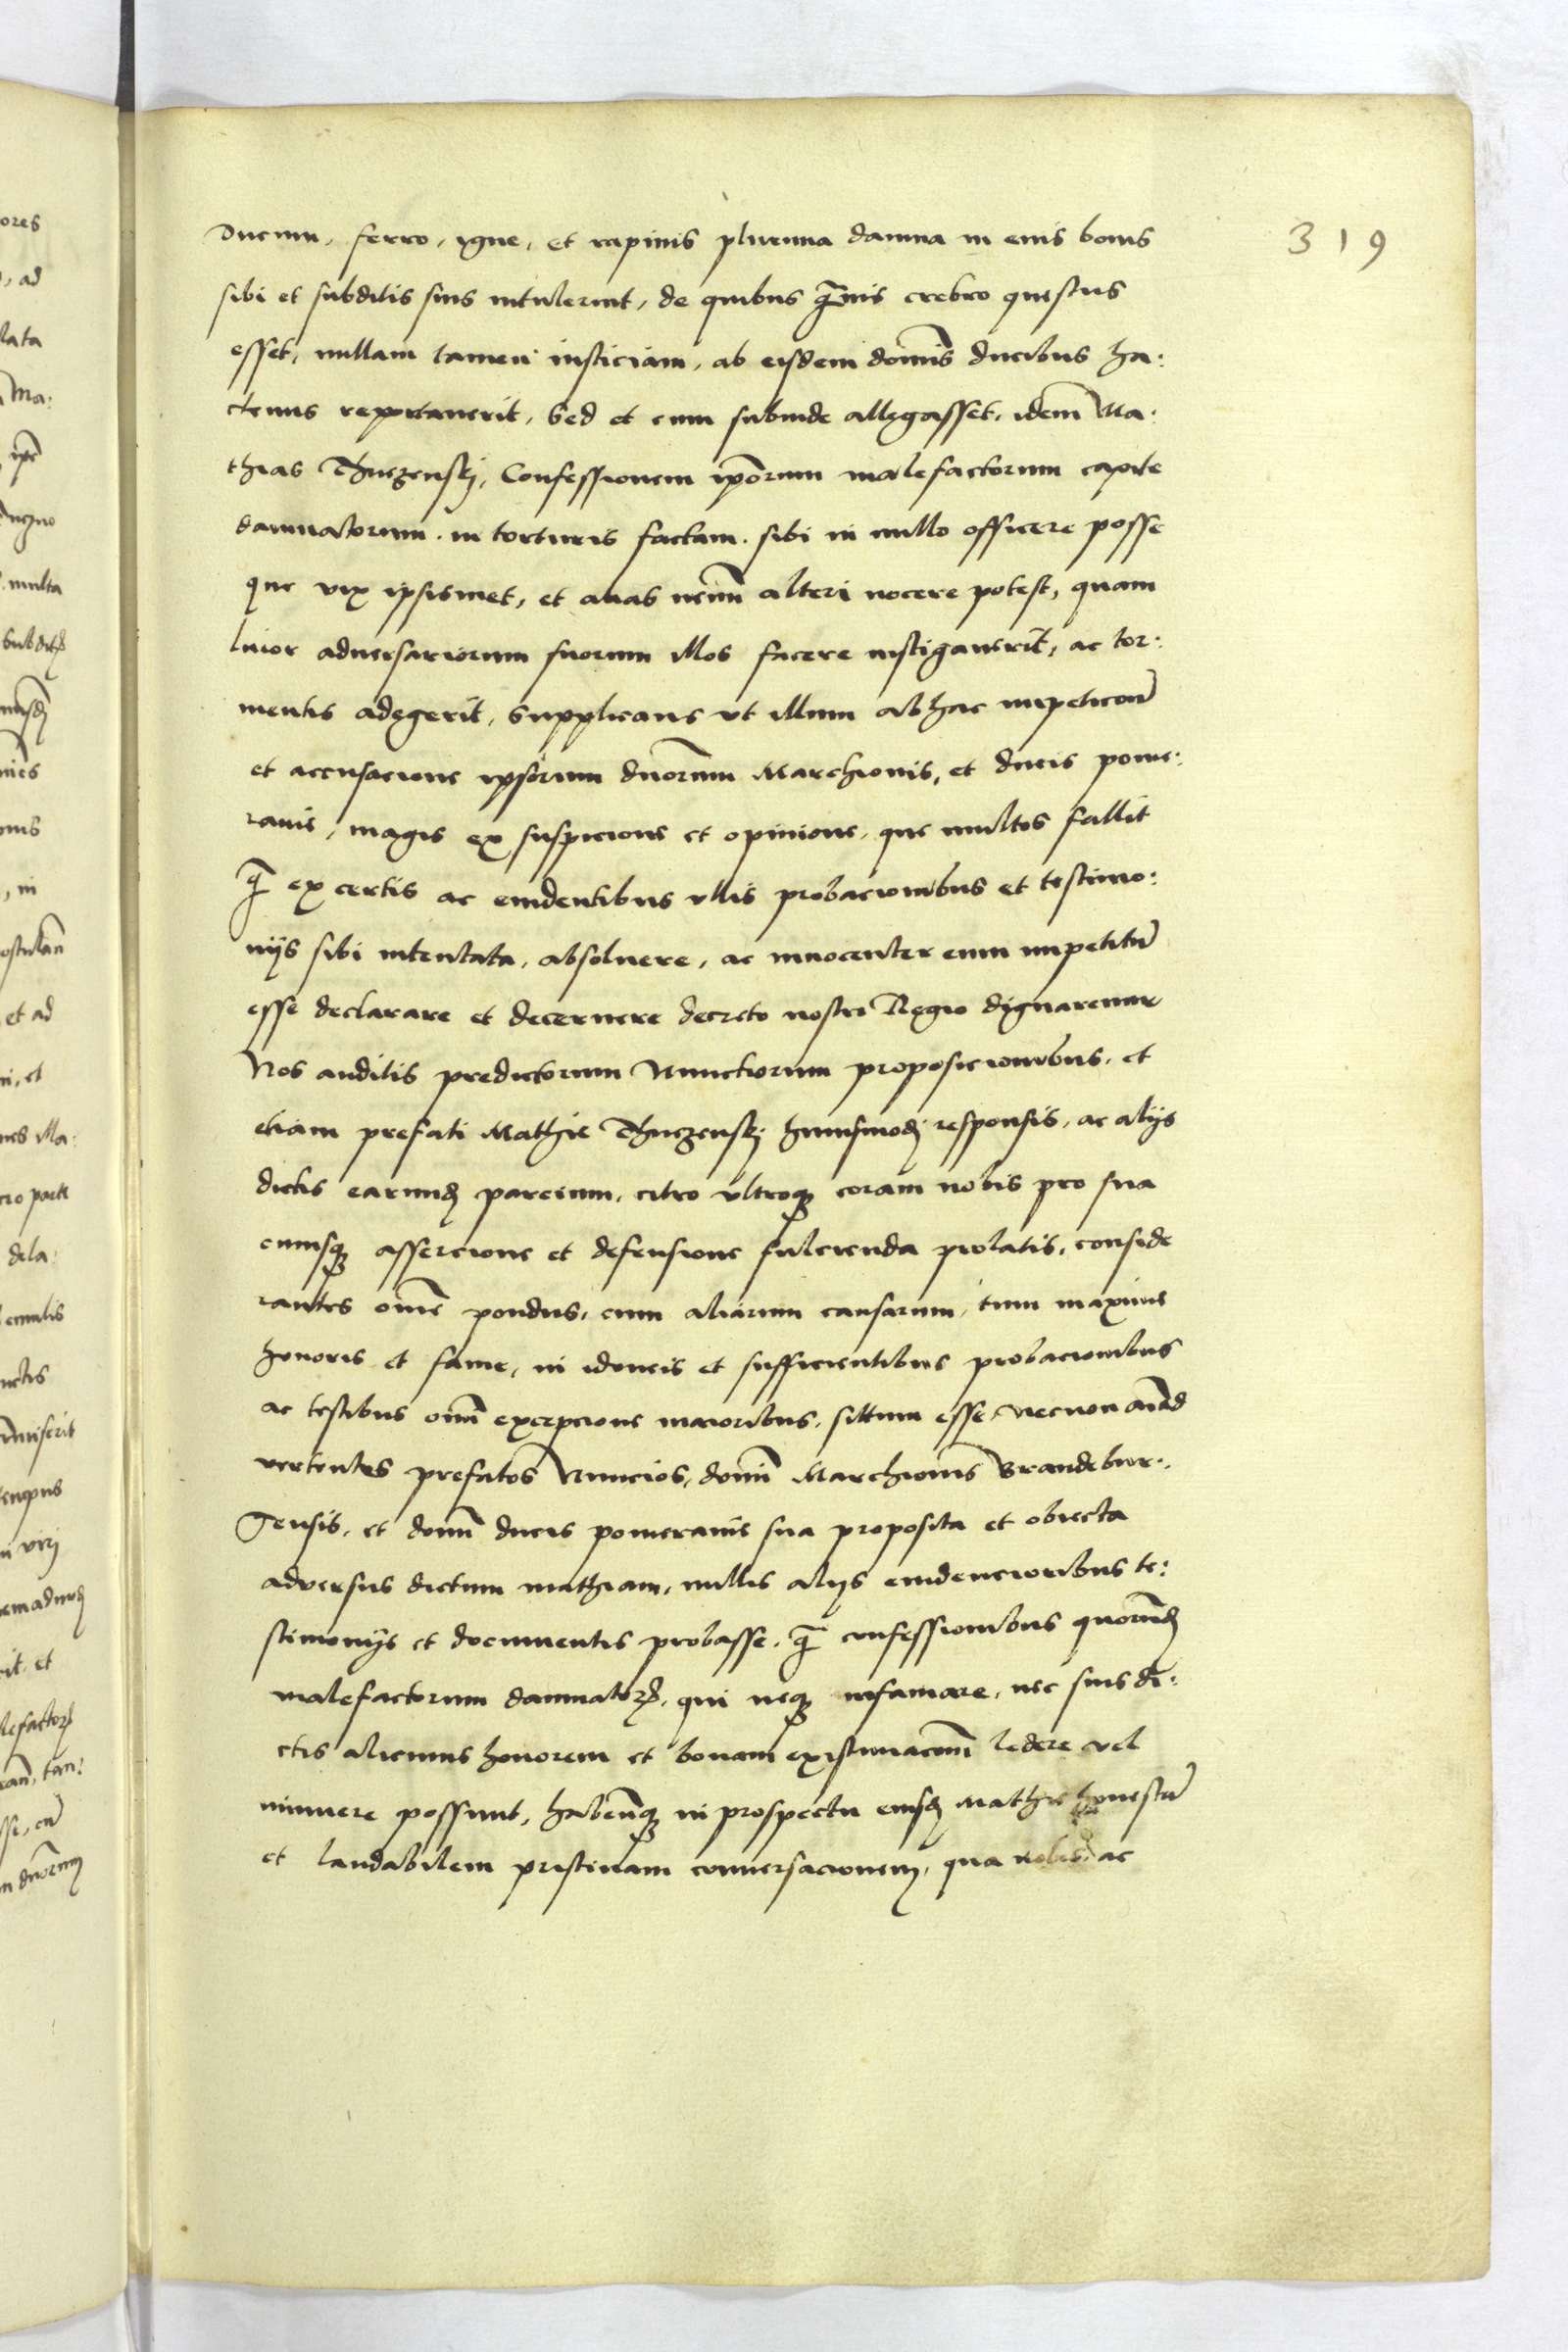 319
Ducum, ferro, igne, et rapinis plurima damna in eius bonis
sibi et subditis suis intulerint, de quibus q̄mvis crebro questus
esset, nullam tamen iusticiam, ab eisdem dominis ducibus ha:
ctenus reportaverit, Sed et cum subinde allegasset, idem Ma:
thias Thuczenskj, Confessionem ipōrum malefactorum capite
damnatorum. in torturis factam. sibi in nullo officere posse
que vix ipsismet, et alias nemī alteri nocere potest, quam
livor adversariorum suorum illos facere instigaverit, ac tor:
mentis adegerit, Supplicans ut illum ab hac impeticōe
et accusacione ipsorum dnōrum Marchionis, et ducis pome:
ranie, magis ex suspicione et opinione, que multos fallit
q̄ ex certis ac evidentibus ullis probacionibus et testimo:
nijs sibi intentata, absolvere, ac innocenter eum impetitū
esse declarare et decernere decreto nostro Regio dignaremur
Nos auditis predictorum Nunctiorum proposicionibus, et
etiam prefati Mathie Thuczenskj huiusmodj responsis, ac alijs
dictis earund parcium, citro ultroq coram nobis pro sua
cuiusq assercione et defensione fulcienda prolatis, conside
rantes ome pondus, cum aliarum causarum, tum maxime
honoris et fame, in idoneis et sufficientibus probacionibus
ac testibus omi excepcione maioribus, situm esse, Necnon aīad
vertentes prefatos Nuncios, domī Marchionis Brandebur:
gensis, et domī ducis pomeranie sua proposita et obiecta
adversus dictum mathiam, nullis alijs evidencioribus te:
stimonijs et documentis probasse, q̄ confessionibus quorūd
malefactorum damnator, qui neq infamare, nec suis di:
ctis alicuius honorem et bonam existimacōem ledere vel
minuere possunt, habentq in prospectu eiusd Mathie honestā
et laudabilem pristinam conversacionem, qua nobis, ac